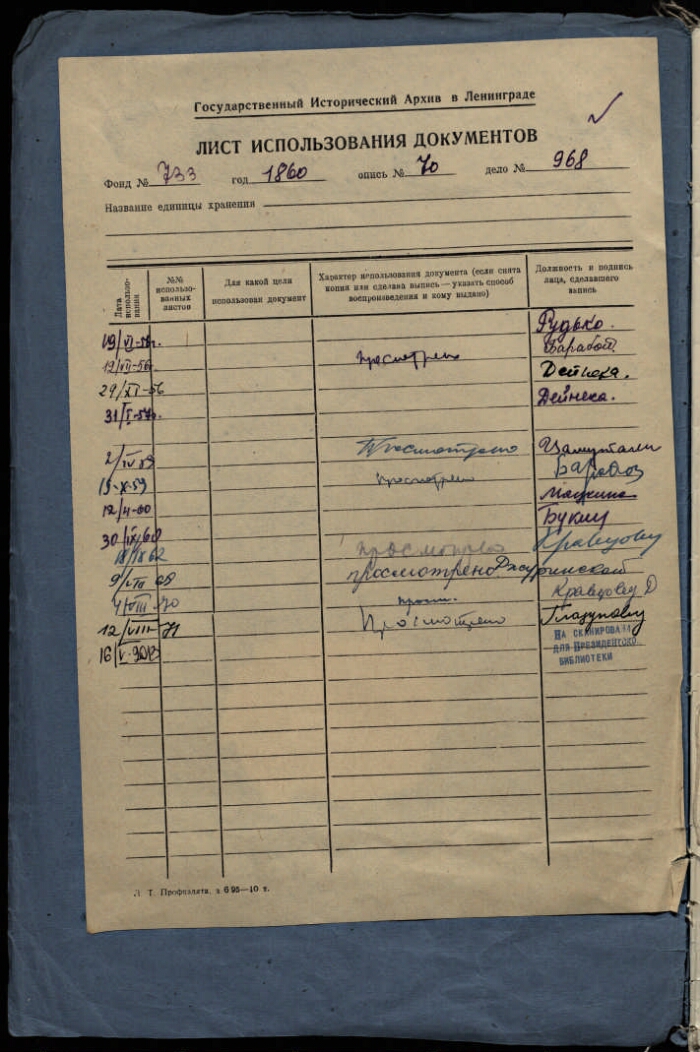 Государственный Исторический Архив в Ленинграде
ЛИСТ ИСПОЛЬЗОВАНИЯ ДОКУМЕНТОВ
Фонд № 733 год 1860 опись № 70 дело № 968
Название единицы хранения
Дата использования
№№ использованных листов
Для какой цели использован документ
Характер использования документа (если снята копия или сделана выпись — указать способ воспроизведения и кому выдано)
Должность и подпись лица, сделавшего запись
19/VI-56г. Рудько.
19/VII-56г. просмотрено
29/XI-56 Дейнека.
31/I-57г. Дейнека.
2/IV 59 Просмотрено Цамутали
15-X-59 просмотрен
12/4-60
30/IX/60 Букму
18/IX 62 просмотрено Кравцову
9/VII 68 просмотрено Джуринской
4/VIII 70 просм. Кравцову Д
12/VIII-71 Просмотрено Глазунову
16/V-2013 НА СКАНИРОВАНИЕ
ДЛЯ ПРЕЗИДЕНТСКОЙ
БИБЛИОТЕКИ
Л. Т. Профпалата, з. 695—10 т.